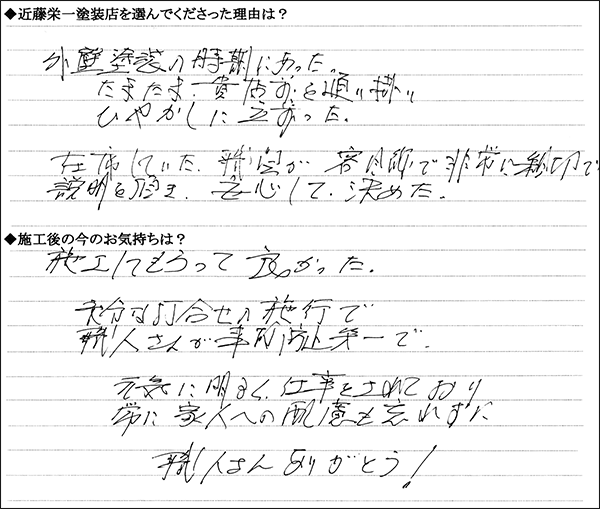 ◆近藤栄一塗装店を選んでくださった理由は？
外壁塗装の時期にあった。
たまたま貴店前を通り掛り
ひやかしに立寄った。
在席していた、職員が 客目線で非常に親切で
説明を頂き、安心して、決めた。
◆施工後の今のお気持ちは？
施工してもらって良かった。
充分な打合せの施行で
職人さんが事故防止第一で、
元気に明るく、仕事をされており
常に家人への配慮も忘れずに
職人さんありがとう！